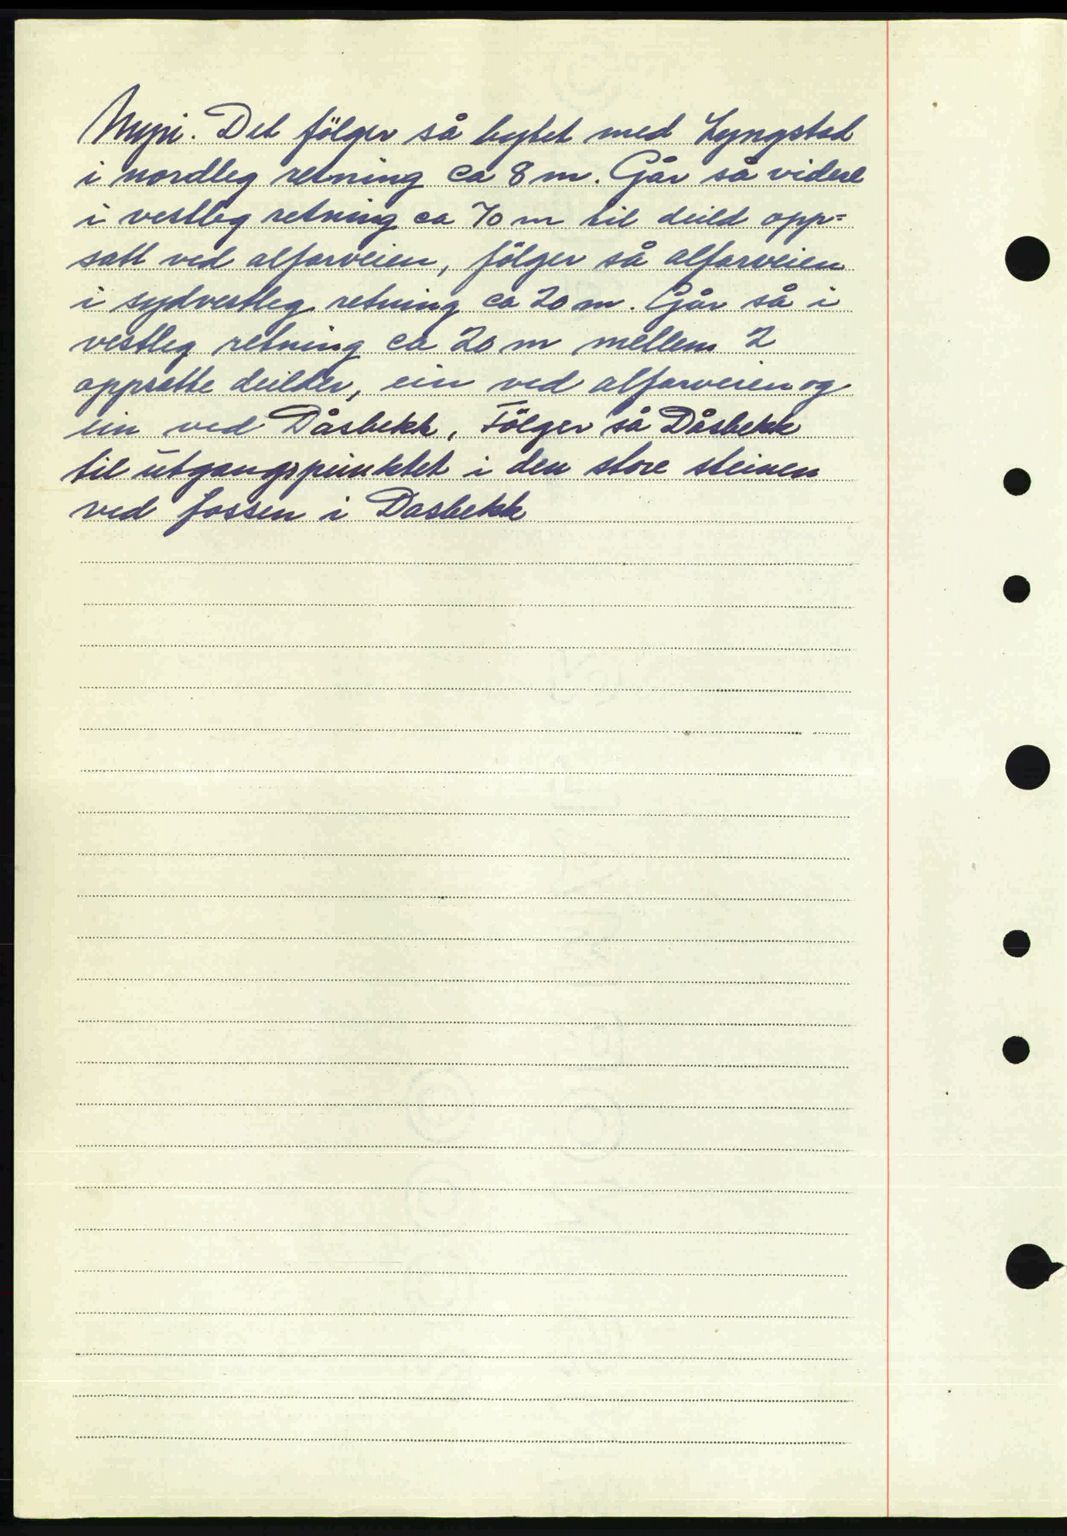 Mypi. Det følger så bytet med Lyngstad
i nordleg retning ca 8 m. Går så videre
i vestleg retning ca 70 m til deild opp=
satt ved alfarveien, følger så alfarveien
i sydvestleg retning ca 20 m. Går så i
vestleg retning ca 20 m mellem 2
oppsatte deilder, ein ved alfarveien og
ein ved Dåsbekk, Følger så Dåsbekk
til utgangspunktet i den store steinen
ved fossen i Dasbekk